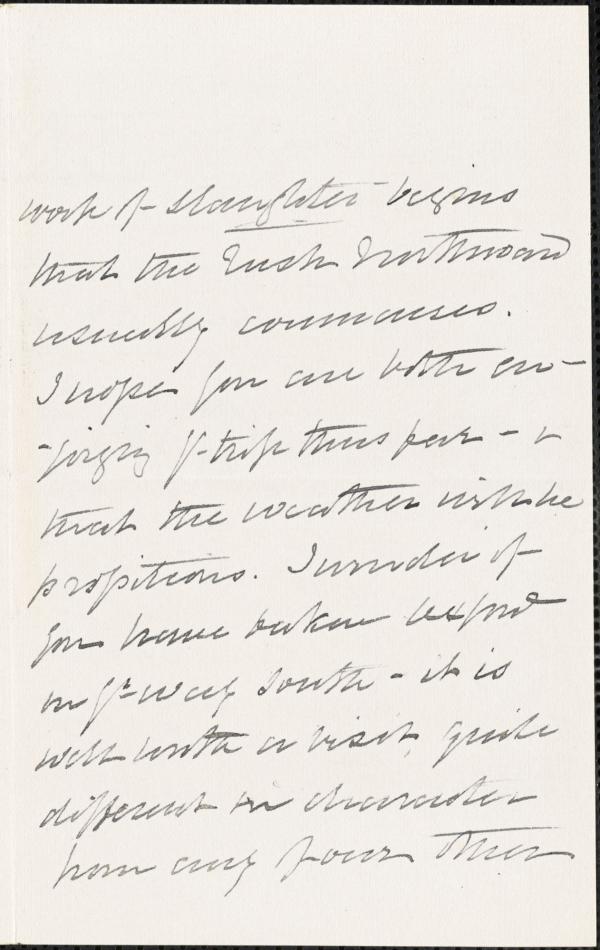 work of slaughter begins
that the rush Northward
usually commences.
I hope you are both en-
-joying yr trip thus far - &
that the weather will be
propitious. I wonder if
you have taken Oxford
on yr way South - it is
well worth a visit, quite
different in character
from any of our other